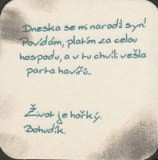 Dneska se mi narodil syn!
Povídám, platím za celou
hospodu, a v tu chvíli vešla
parta havířů.
Život je hořký.
Bohudík.